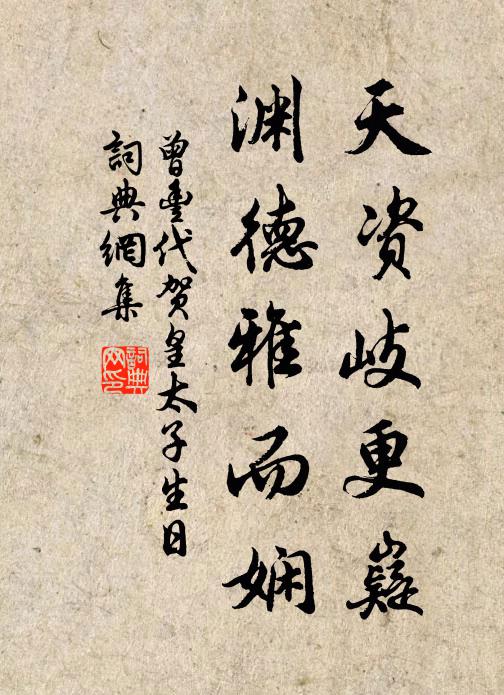 天資歧更嶷
渊德雅而娴
曾豐代贺皇太子生日
詞典網集
詞典网印